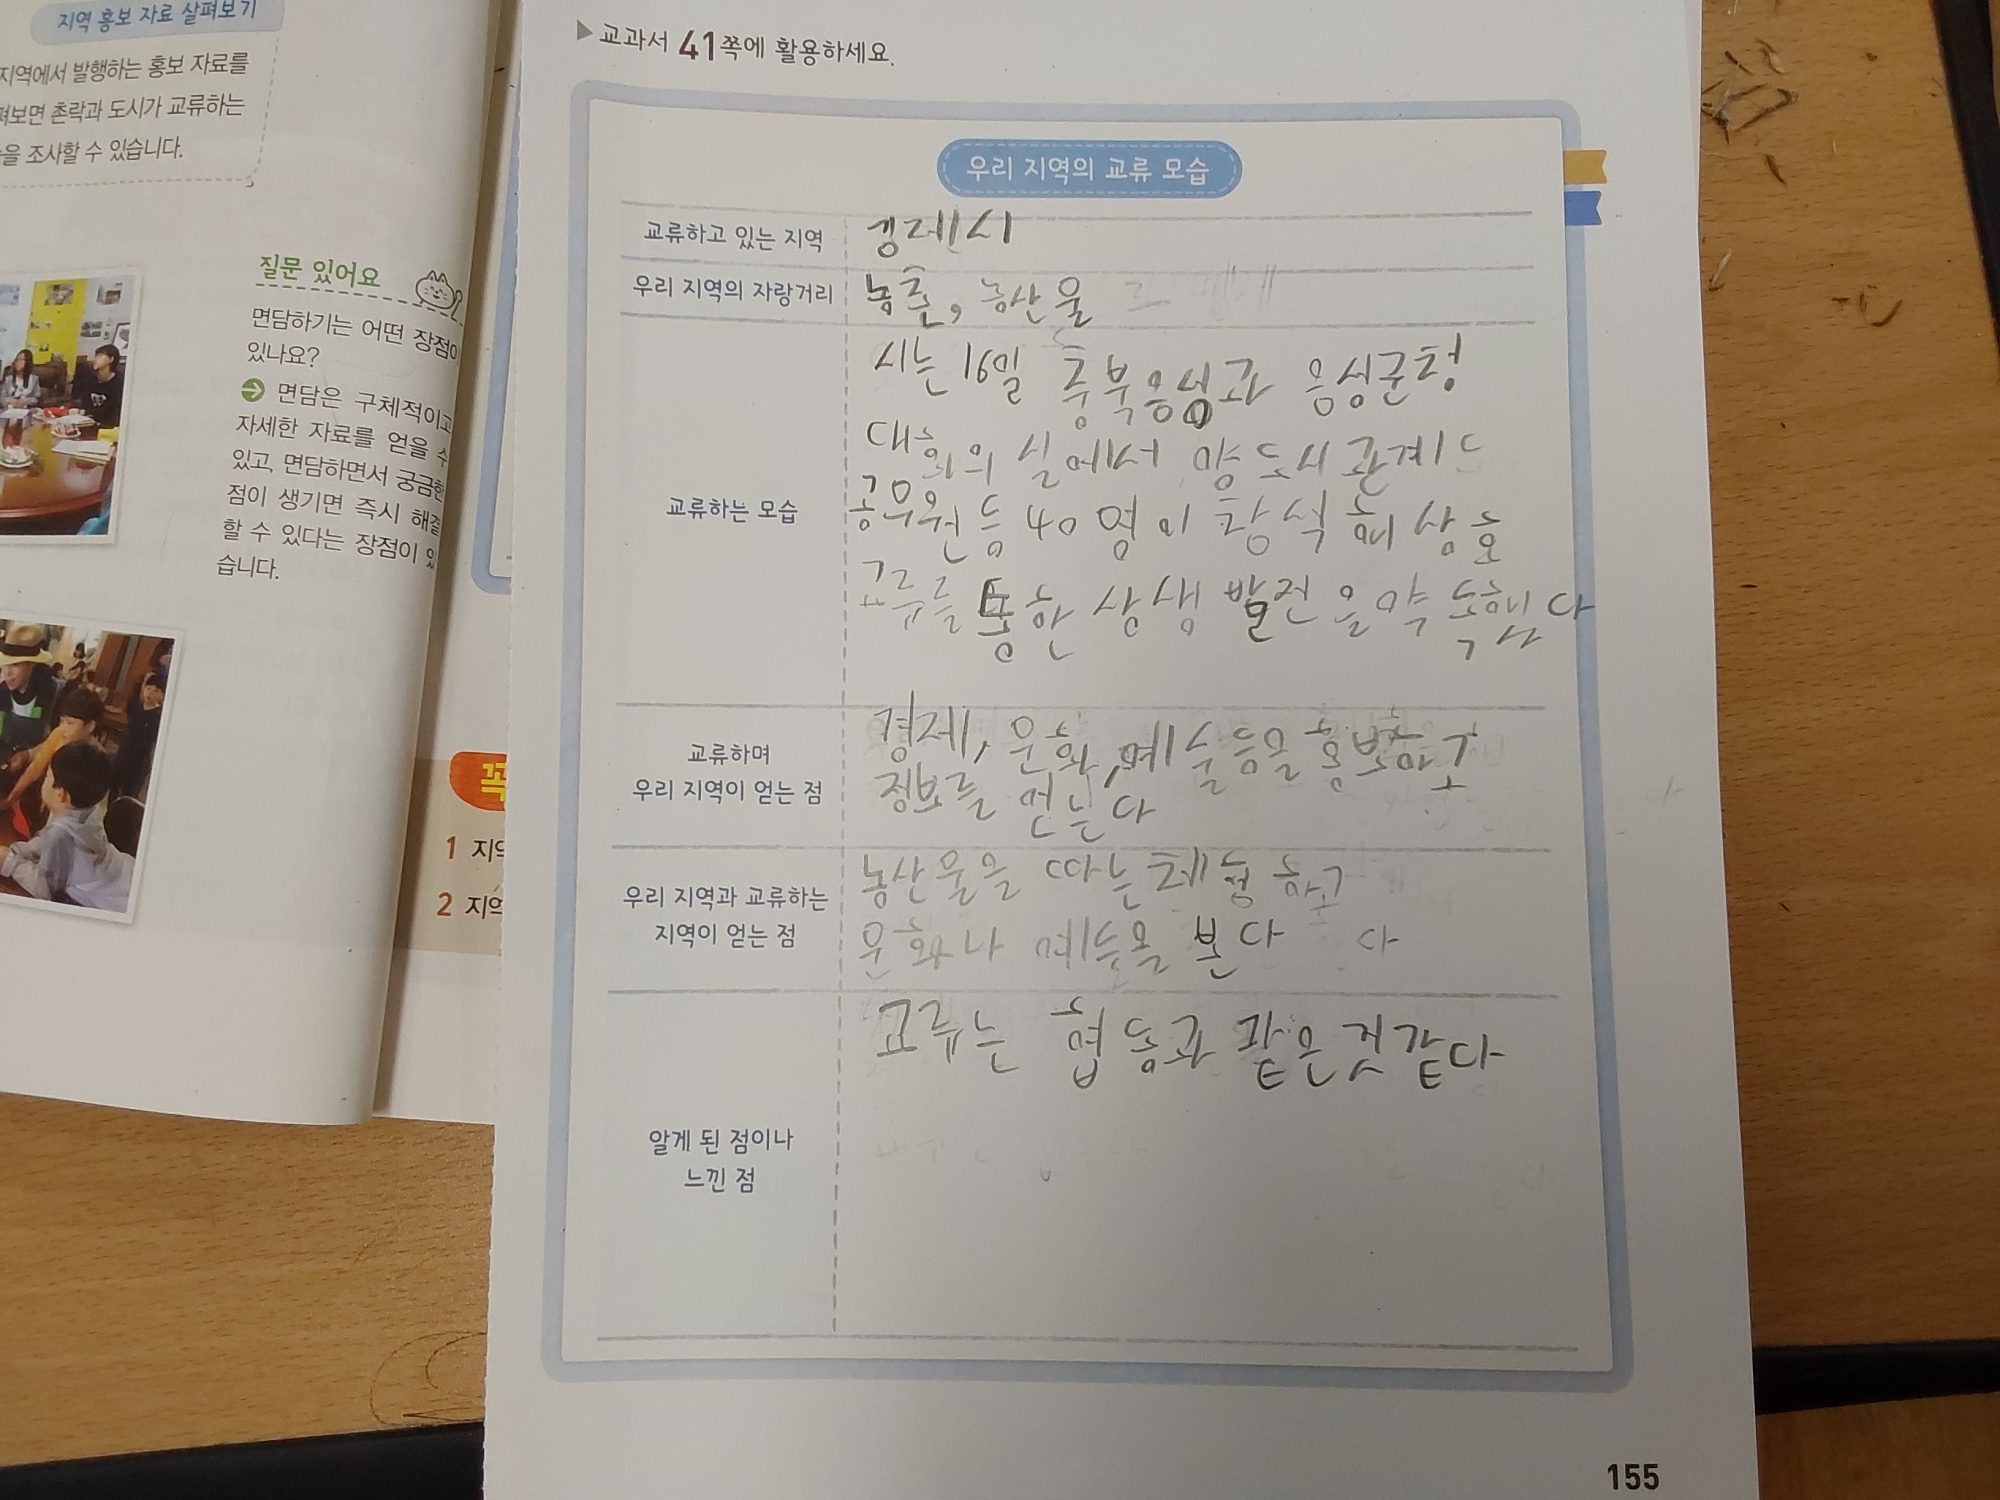 지역 홍보 자료 살펴보기
지역에서 발행하는 홍보 자료를
펴보면 촌락과 도시가 교류하는
을 조사할 수 있습니다.
질문 있어요
면담하기는 어떤 장점이
있나요?
면담은 구체적이고
자세한 자료를 얻을 수
있고, 면담하면서 궁금한
점이 생기면 즉시 해결
할 수 있다는 장점이 있
습니다.
꼭
1 지역
2 지역
▶교과서 41쪽에 활용하세요.
우리 지역의 교류 모습
교류하고 있는 지역
김제시
우리 지역의 자랑거리
농촌, 농산물
교류하는 모습
시는 16일 충북음성과 음성군청
대회의실에서 양도시관계
공무원 등 40명이 참석해 상호
교류를 통한 상생 발전을 약속했다
교류하며
우리 지역이 얻는 점
경제, 문화, 예술등을 홍보하고
정보를 얻는다
우리 지역과 교류하는
지역이 얻는 점
농산물을 따는 체험하고
문화나 예술을 본다 다
알게 된 점이나
느낀 점
교류는 협동과 같은것같다
155